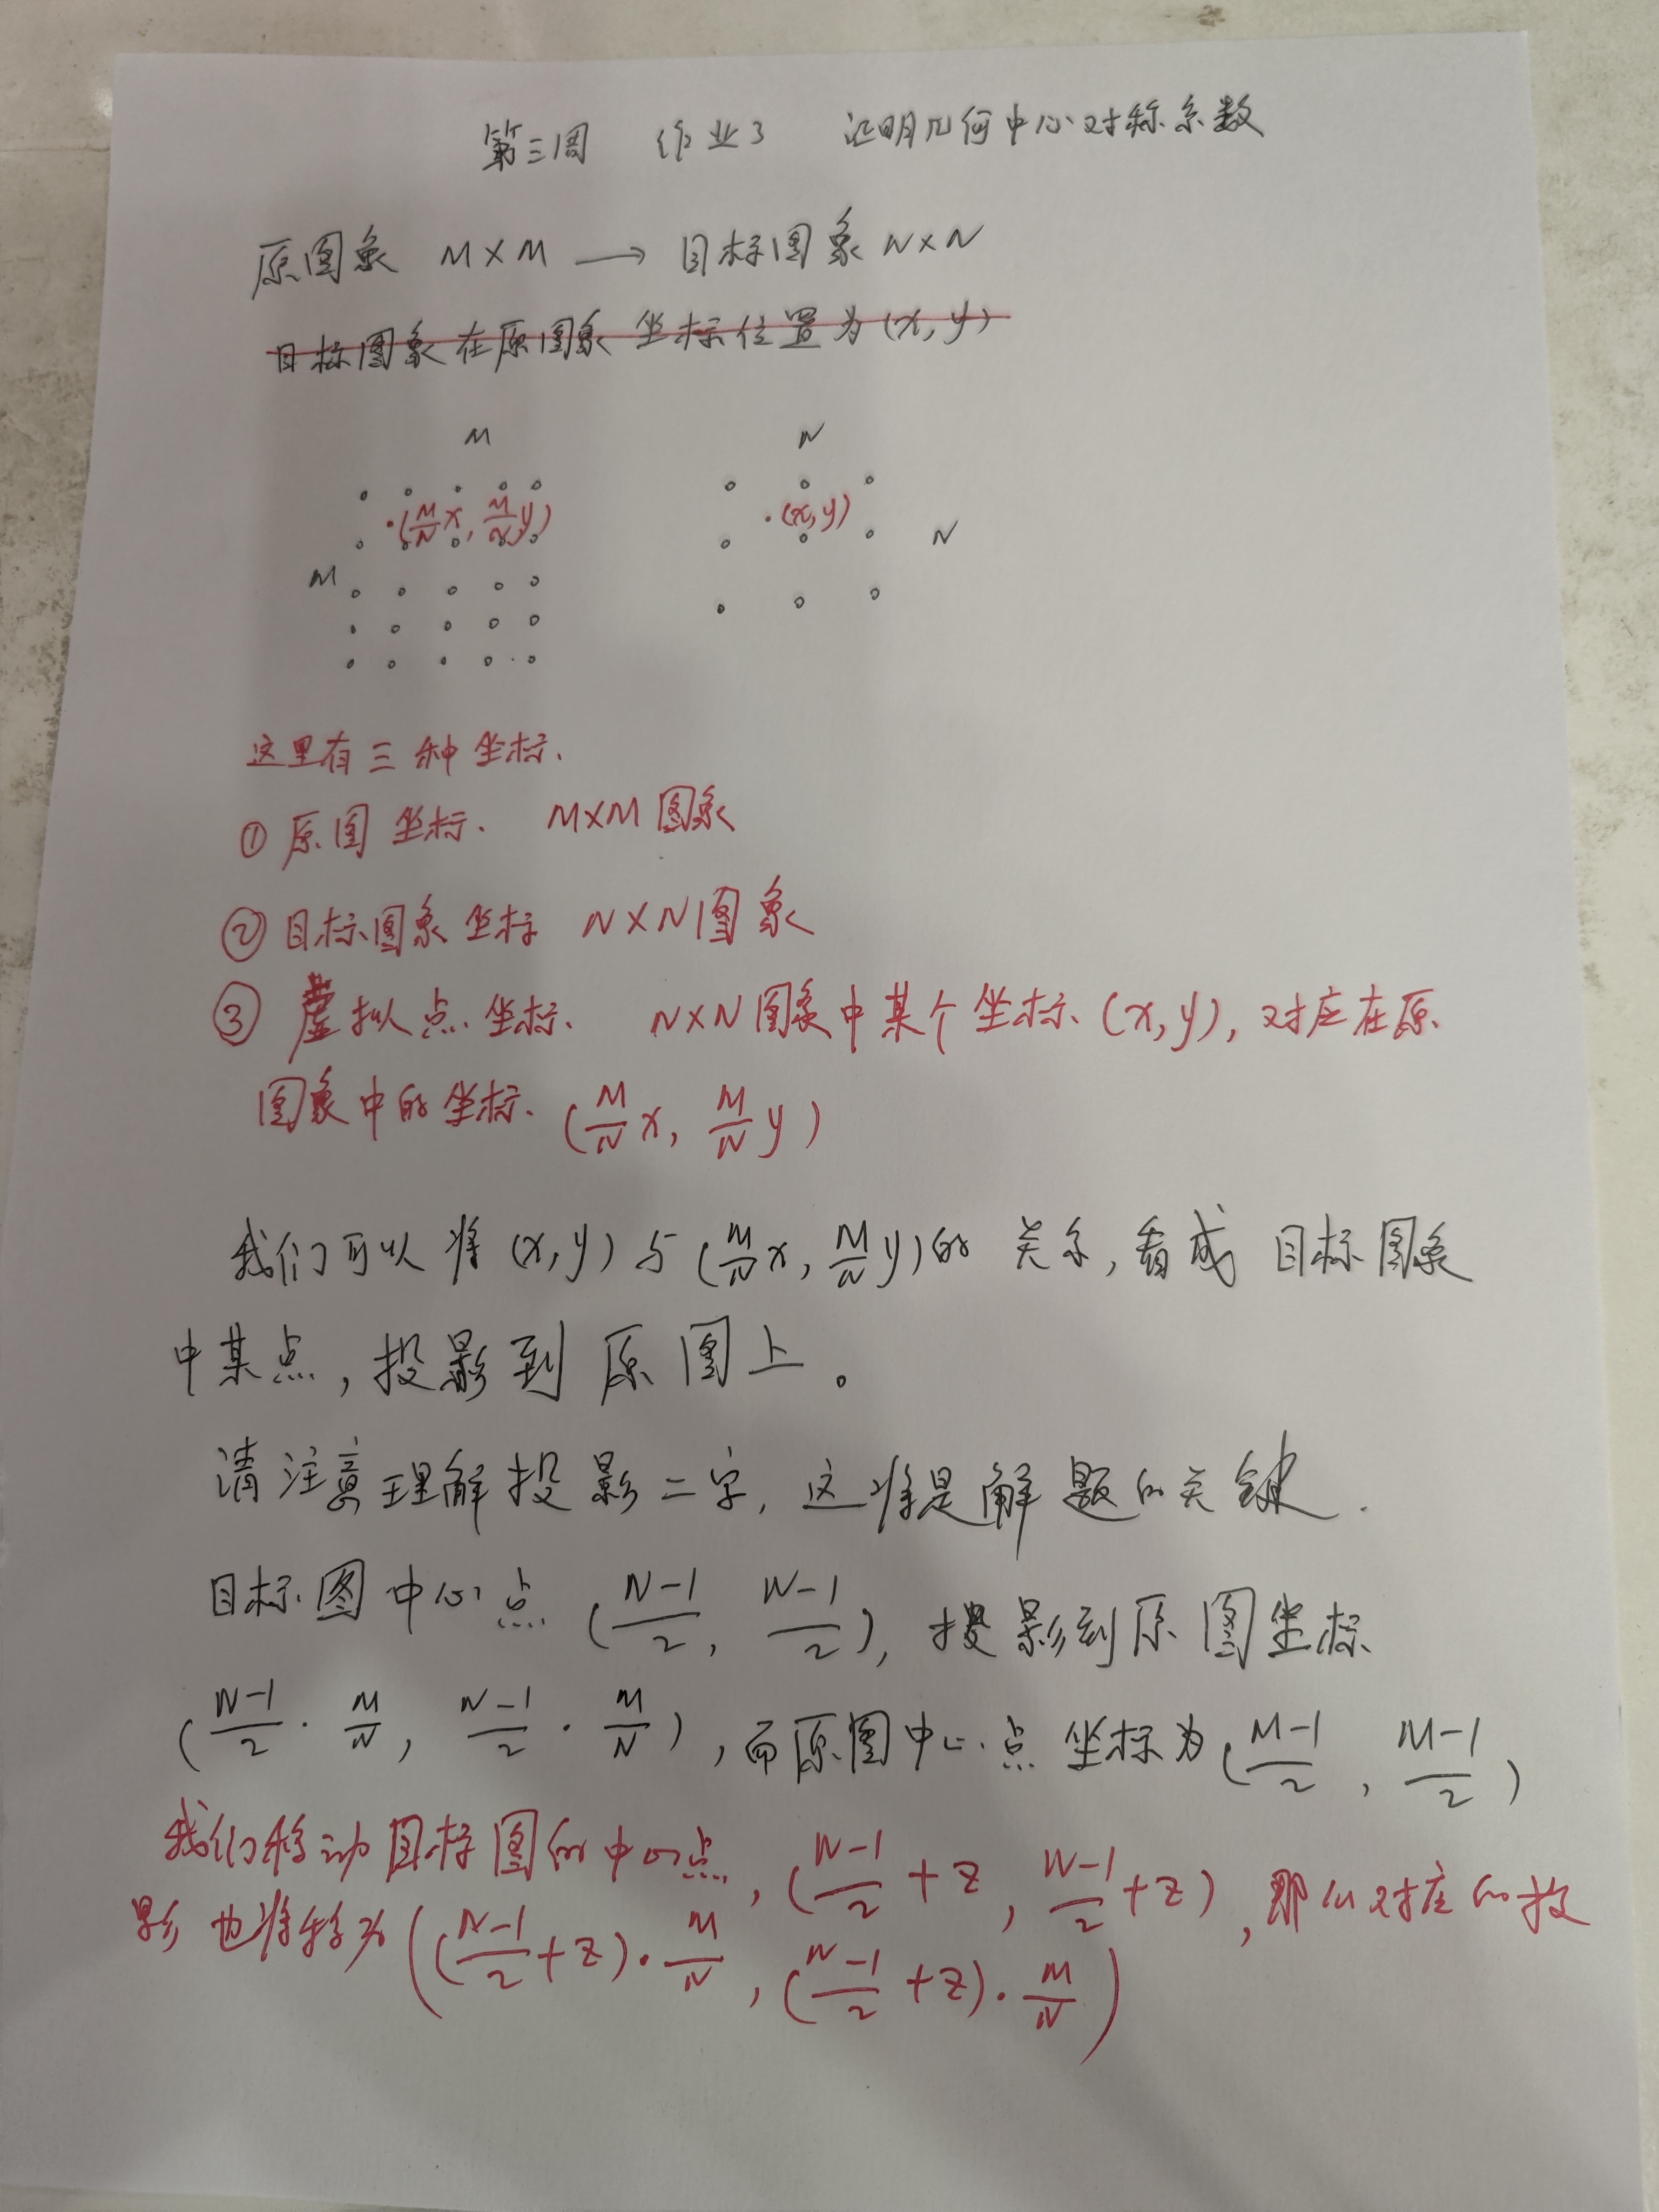 第三周 作业3 证明几何中心对称系数
原图象 M×M → 目标图象 N×N
目标图象在原图象坐标位置为(x,y)
M N
(M/N x, M/N y) (x,y)
M N
这里有三种坐标.
① 原图坐标. M×M图象
② 目标图象坐标 N×N图象
③ 虚拟点坐标. N×N图象中某个坐标(x,y),对应在原
图象中的坐标. (M/N x, M/N y)
我们可以将(x,y)与(M/N x, M/N y)的关系,看成目标图象
中某点,投影到原图上。
请注意理解投影二字,这将是解题的关键.
目标图中心点 ((N-1)/2, (N-1)/2), 投影到原图坐标
((N-1)/2 · M/N, (N-1)/2 · M/N), 而原图中心点坐标为((M-1)/2, (M-1)/2)
我们移动目标图的中心点, ((N-1)/2+z, (N-1)/2+z), 那么对应的投
影也将移为(((N-1)/2+z)·M/N, ((N-1)/2+z)·M/N)